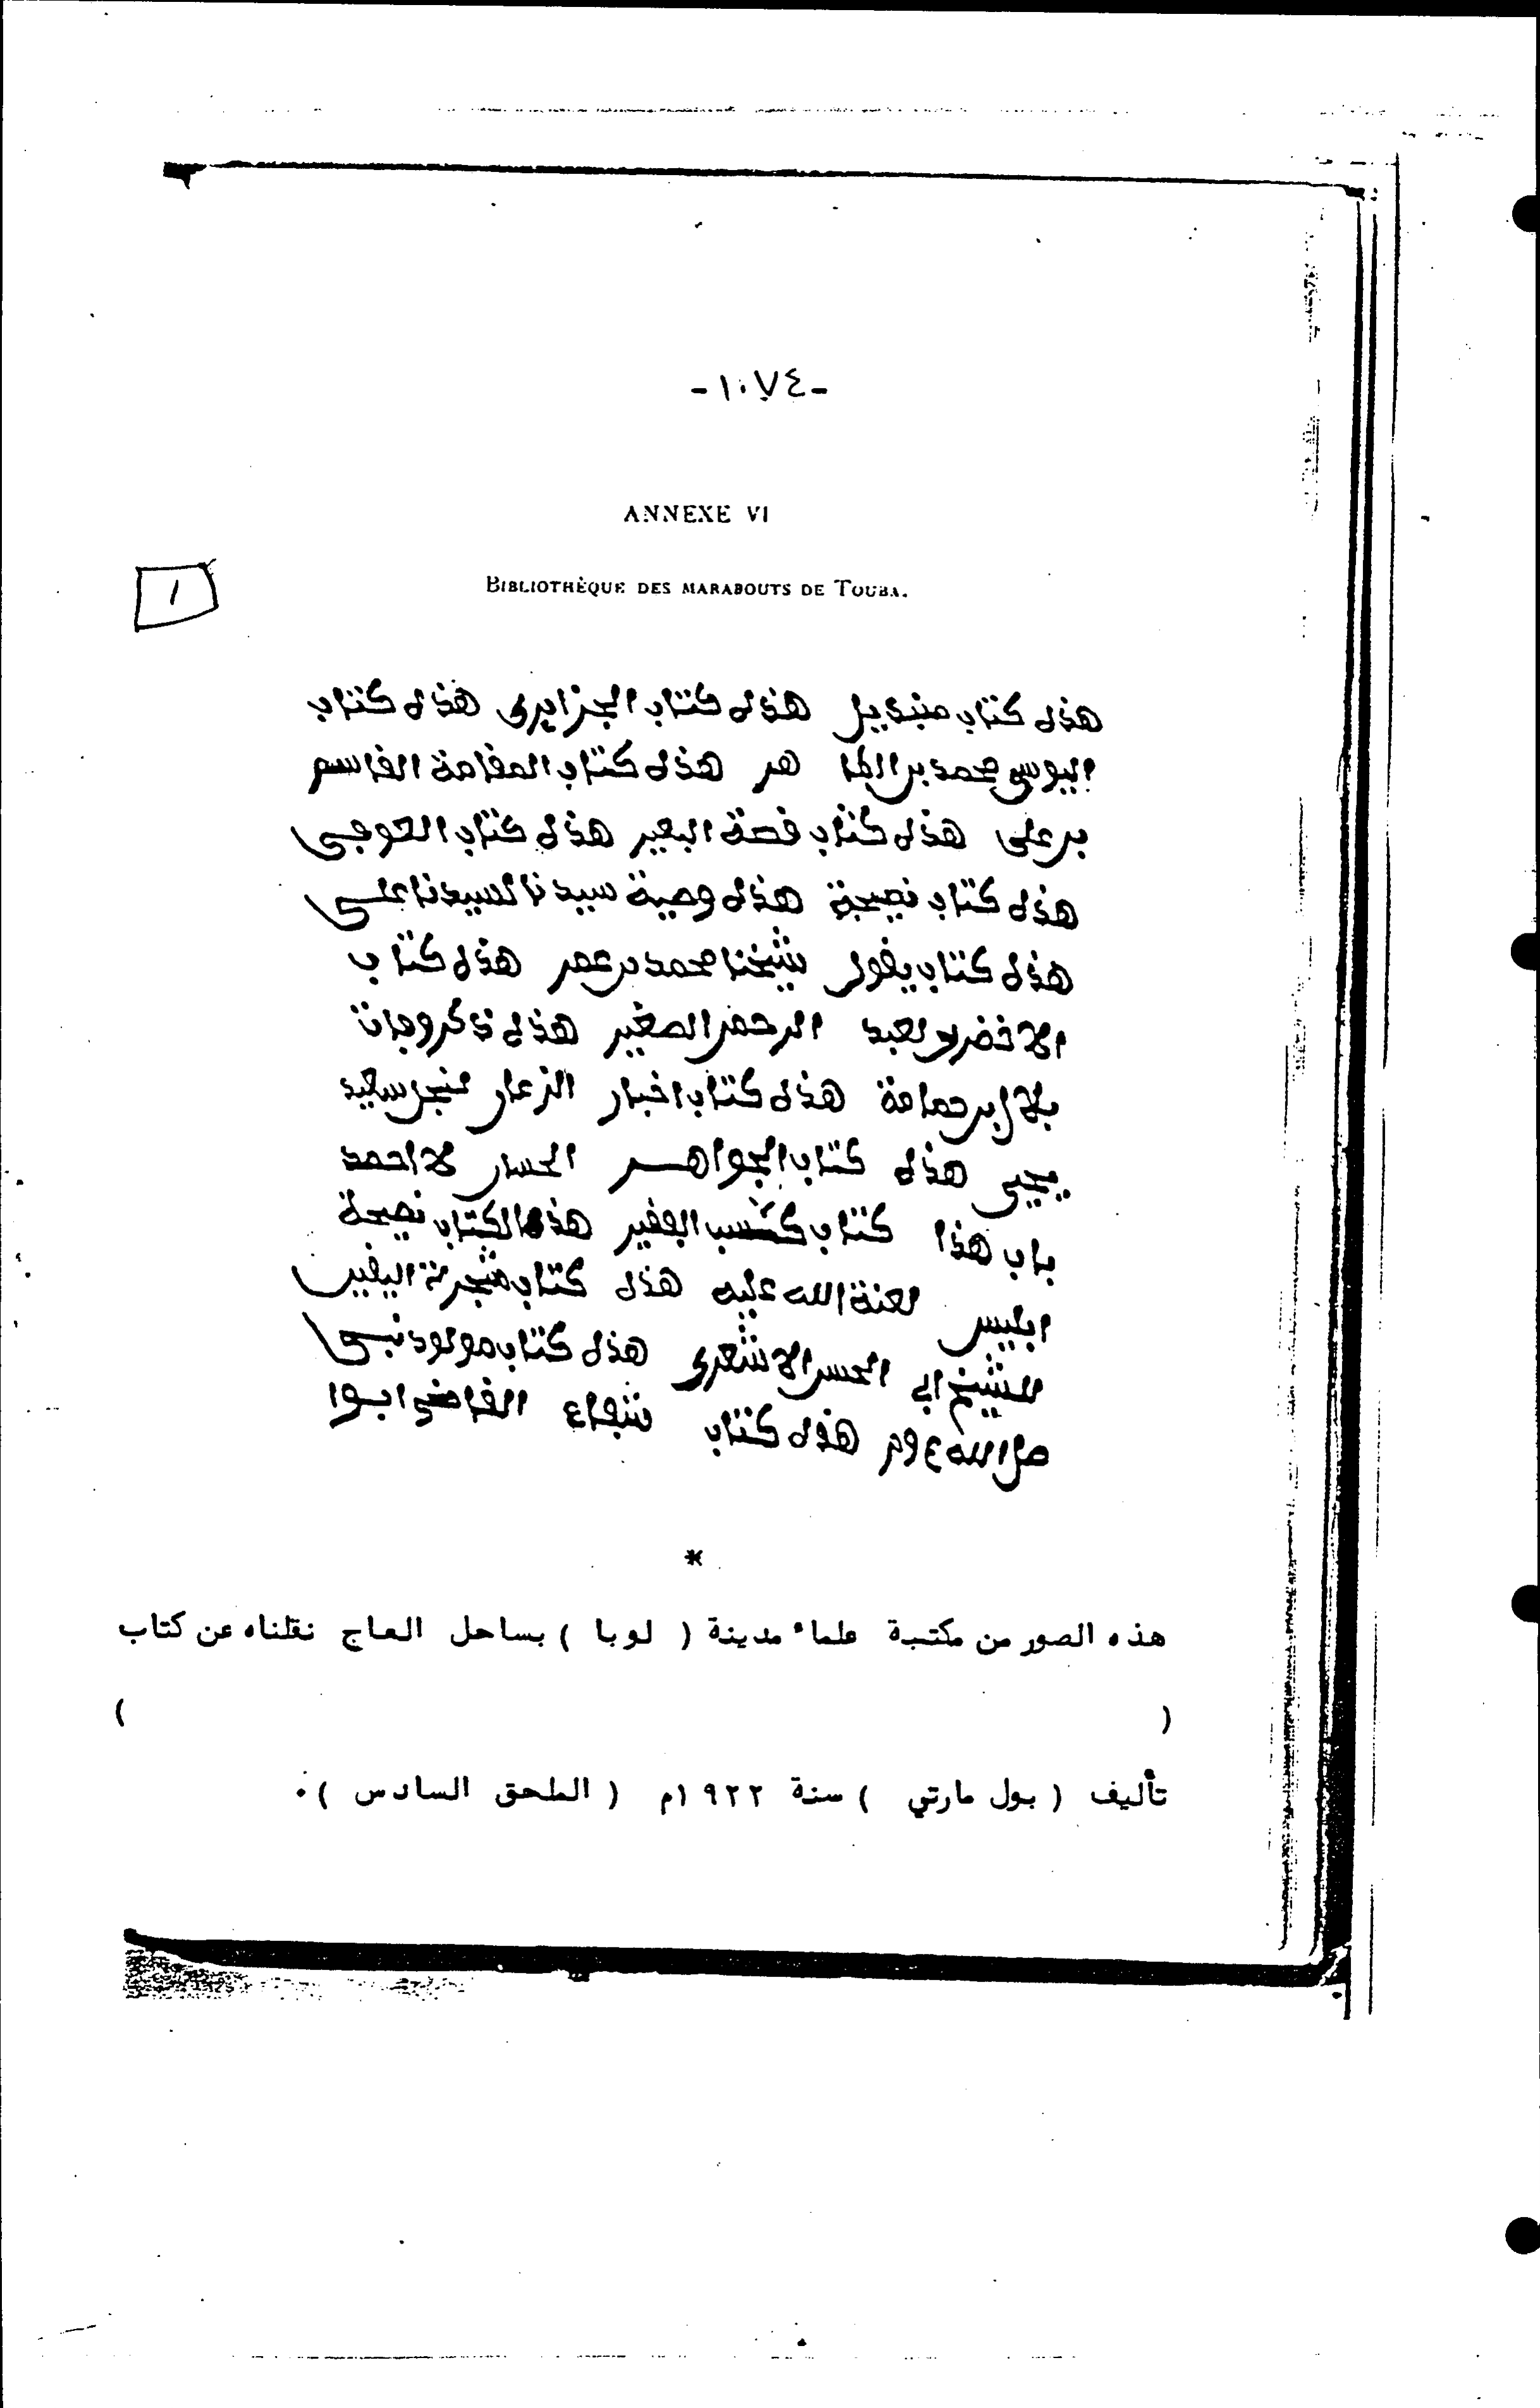 -١٠٧٤-
ANNEXE VI
BIBLIOTHÈQUE DES MARABOUTS DE TOUBA.
١
هذه كتاب منديل هذه كتاب الجزايرى هذه كتاب
اليوسى محمد بن الطا هر هذه كتاب المقامة القاسم
بن على هذه كتاب قصة البعير هذه كتاب العوجى
هذه كتاب نصيحة هذه وصية سيدنا لسيدنا على
هذه كتاب يقول شيخنا محمد بن عمر هذه كتاب
الاخضرى لعبد الرحمن الصغير هذه ذكر وفات
بلال بن حمامة هذه كتاب اخبار الزمان سعيد
يحيى هذه كتاب الجواهر الحسان لاحمد
باب هذا كتاب كسب الفقير هذه الكتاب نصيحة
ابليس لعنة الله عليه هذه كتاب شجرة اليقين
للشيخ ابى الحسن الاشعرى هذه كتاب مولود نبى
صل الله ع وم هذه كتاب شفاء القاضى ابوا
*
هذه الصور من مكتبة علماء مدينة ( لوبا ) بساحل العاج نقلناه عن كتاب
( )
تأليف ( بول مارتي ) سنة ١٩٢٢م ( الملحق السادس ) .